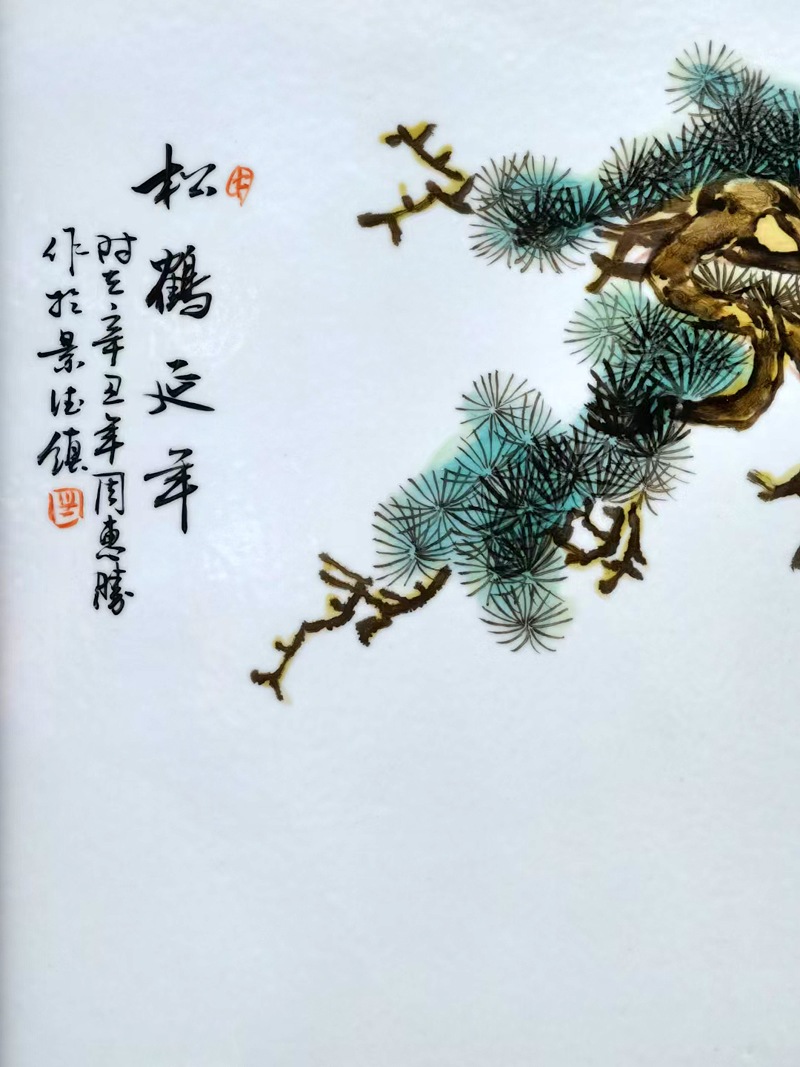 松鶴延年
时在辛丑年周惠勝
作於景德鎮